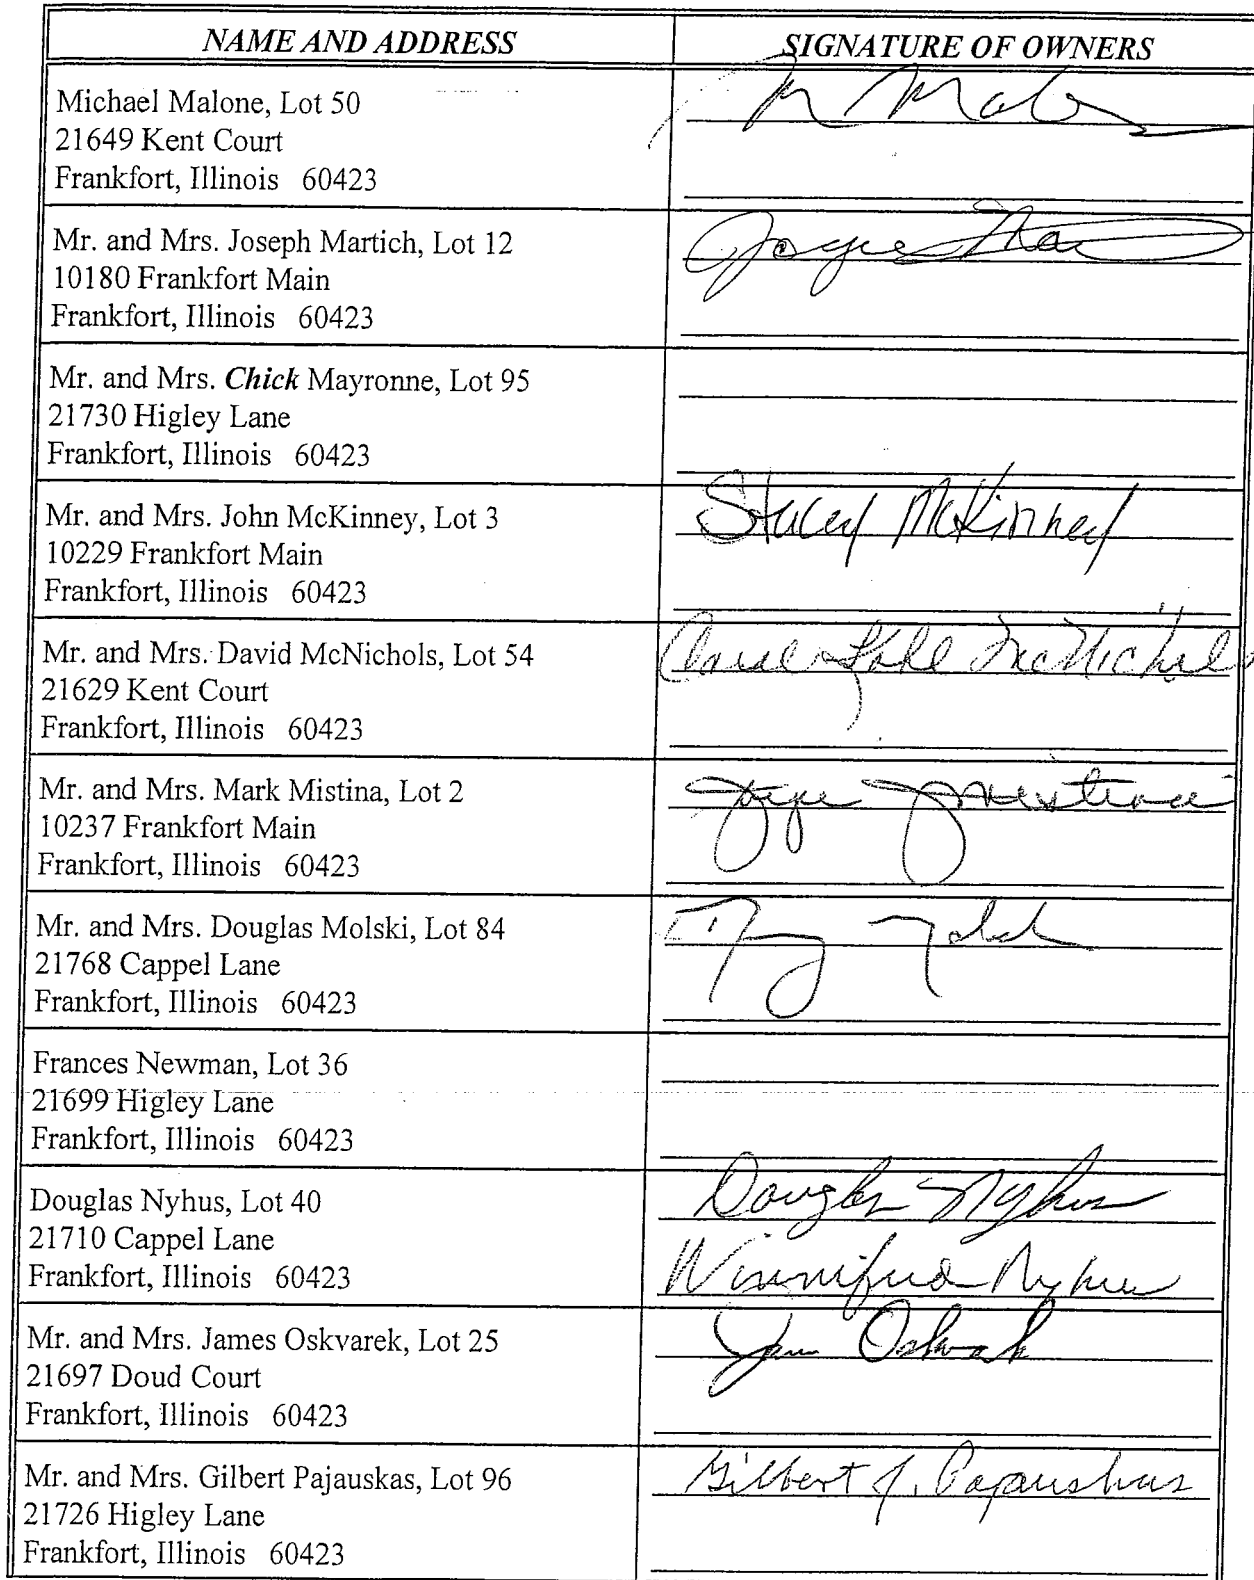 NAME AND ADDRESS
SIGNATURE OF OWNERS
Michael Malone, Lot 50
21649 Kent Court
Frankfort, Illinois 60423
Mr. and Mrs. Joseph Martich, Lot 12
10180 Frankfort Main
Frankfort, Illinois 60423
Joyce
Mr. and Mrs. Chick Mayronne, Lot 95
21730 Higley Lane
Frankfort, Illinois 60423
Mr. and Mrs. John McKinney, Lot 3
10229 Frankfort Main
Frankfort, Illinois 60423
Stacey McKinney
Mr. and Mrs. David McNichols, Lot 54
21629 Kent Court
Frankfort, Illinois 60423
McNichols
Mr. and Mrs. Mark Mistina, Lot 2
10237 Frankfort Main
Frankfort, Illinois 60423
Mistina
Mr. and Mrs. Douglas Molski, Lot 84
21768 Cappel Lane
Frankfort, Illinois 60423
Frances Newman, Lot 36
21699 Higley Lane
Frankfort, Illinois 60423
Douglas Nyhus, Lot 40
21710 Cappel Lane
Frankfort, Illinois 60423
Douglas Nyhus
Winnifred Nyhus
Mr. and Mrs. James Oskvarek, Lot 25
21697 Doud Court
Frankfort, Illinois 60423
Mr. and Mrs. Gilbert Pajauskas, Lot 96
21726 Higley Lane
Frankfort, Illinois 60423
Gilbert J. Pajauskas